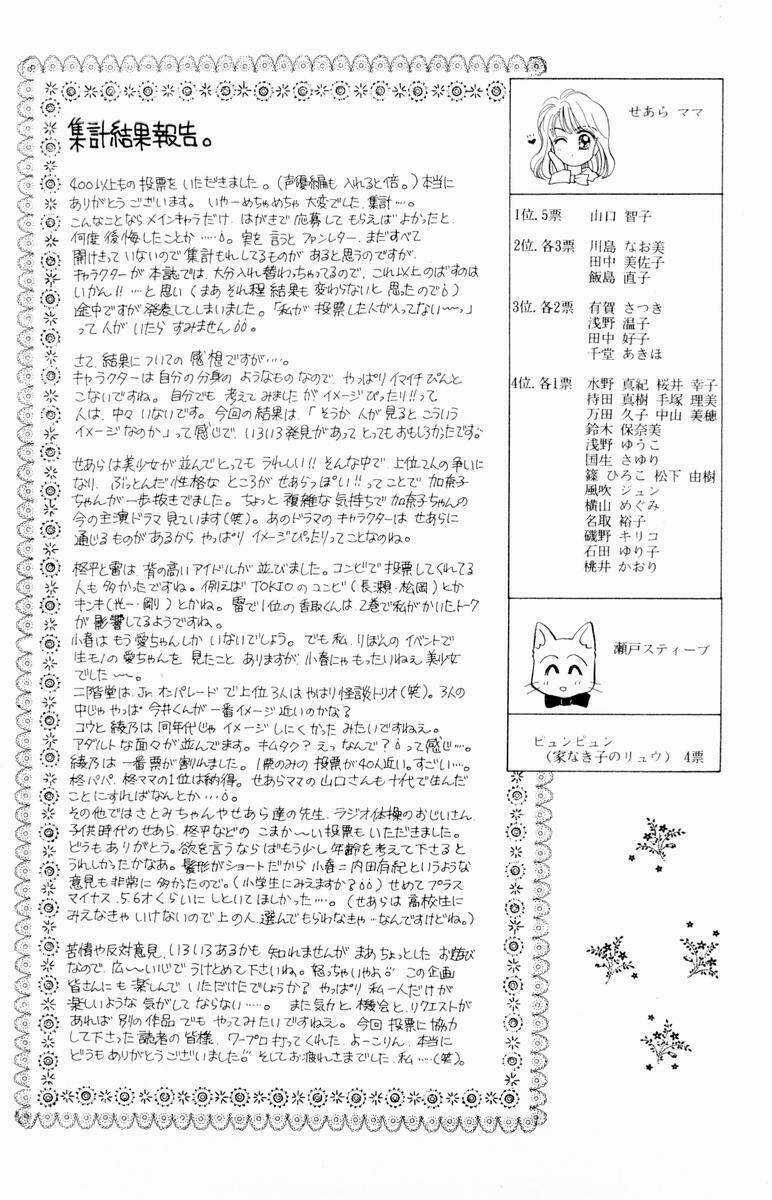 集計結果報告。
400以上もの投票をいただきました。(声優編も入れると倍。)本当に
ありがとうございます。いやーめちゃめちゃ大変でした、集計…。
こんなことならメインキャラだけ、はがきで応募してもらえばよかったと、
何度後悔したことか……。実を言うとファンレター、まだすべて
開けきっていないので集計もれしてるものがあると思うのですが、
キャラクターが本誌では、大分入れ替わっちゃってるので、これ以上のばすのは
いかん!!…と思い(まあそれ程結果も変わらないと思ったので)
途中ですが発表してしまいました。「私が投票した人が入ってない〜っ」
って人がいたらすみません。
さて、結果についての感想ですが…。
キャラクターは自分の分身のようなものなので、やっぱりイマイチぴんと
こないですね。自分でも、考えてみましたがイメージぴったり!!って
人は、中々いないです。今回の結果は、「そうか人が見るとこういう
イメージなのか」って感じで、いろいろ発見があってとってもおもしろかったです。
せあらは美少女が並んでとってもうれしい!!そんな中で、上位2人の争いに
なり、ぶっとんだ性格なところがせあらっぽい!!ってことで加奈子
ちゃんが一歩抜きでました。ちょっと複雑な気持ちで加奈子ちゃんの
今の主演ドラマ見ています(笑)。あのドラマのキャラクターはせあらに
通じるものがあるからやっぱりイメージぴったりってことなのね。
柊平と雷は背の高いアイドルが並びました。コンビで投票してくれてる
人も多かったですね。例えばTOKIOのコンビ(長瀬・松岡)とか
キンキ(光一・剛)とかね。雷で1位の香取くんは2巻で私がかいたトーク
が影響してるようですね。
小春はもう愛ちゃんしかいないでしょう。でも私、りぼんのイベントで
生モノの愛ちゃんを見たことありますが、小春にゃもったいねえ美少女
でした〜。
二階堂は、Jr.オンパレードで上位3人はやはり怪談トリオ(笑)。3人の
中じゃやっぱ今井くんが一番イメージ近いのかな?
コウと綾乃は同年代じゃイメージしにくかったみたいですねえ。
アダルトな面々が並んでます。キムタク?えっなんで?って感じ…。
綾乃は一番票が割れました。1票のみの投票が40人近い。すごい…。
柊パパ、柊ママの1位は納得。せあらママの山口さんも十代で生んだ
ことにすればなんとか…。
その他ではさとみちゃんやせあら達の先生、ラジオ体操のおじいさん、
子供時代のせあら、柊平などのこまか〜い投票もいただきました。
どうもありがとう。欲を言うならばもう少し年齢を考えて下さると
うれしかったかなあ。髪形がショートだから小春=内田有紀というような
意見も非常に多かったので。(小学生にみえますか?)せめてプラス
マイナス、5.6才くらいにしといてほしかった…。(せあらは高校生に
みえなきゃいけないので上の人、選んでもらわなきゃ…なんですけどね。)
苦情や反対意見、いろいろあるかも知れませんがまあちょっとしたお遊び
なので、広〜い心でうけとめて下さいね。怒っちゃいやよ この企画
皆さんにも楽しんでいただけたでしょうか?やっぱり私一人だけが
楽しいような気がしてならない…。また気力と、機会と、リクエストが
あれば別の作品でもやってみたいですねえ。今回投票に協力
して下さった読者の皆様、ワープロ打ってくれた、よーこりん、本当に
どうもありがとうございました そしてお疲れさまでした、私…(笑)。
せあら ママ
1位.5票 山口 智子
2位.各3票 川島 なお美
田中 美佐子
飯島 直子
3位.各2票 有賀 さつき
浅野 温子
田中 好子
千堂 あきほ
4位.各1票 水野 真紀 桜井 幸子
持田 真樹 手塚 理美
万田 久子 中山 美穂
鈴木 保奈美
浅野 ゆうこ
国生 さゆり
篠 ひろこ 松下 由樹
風吹 ジュン
横山 めぐみ
名取 裕子
磯野 キリコ
石田 ゆり子
桃井 かおり
瀬戸スティーブ
ピュンピュン
(家なき子のリュウ) 4票